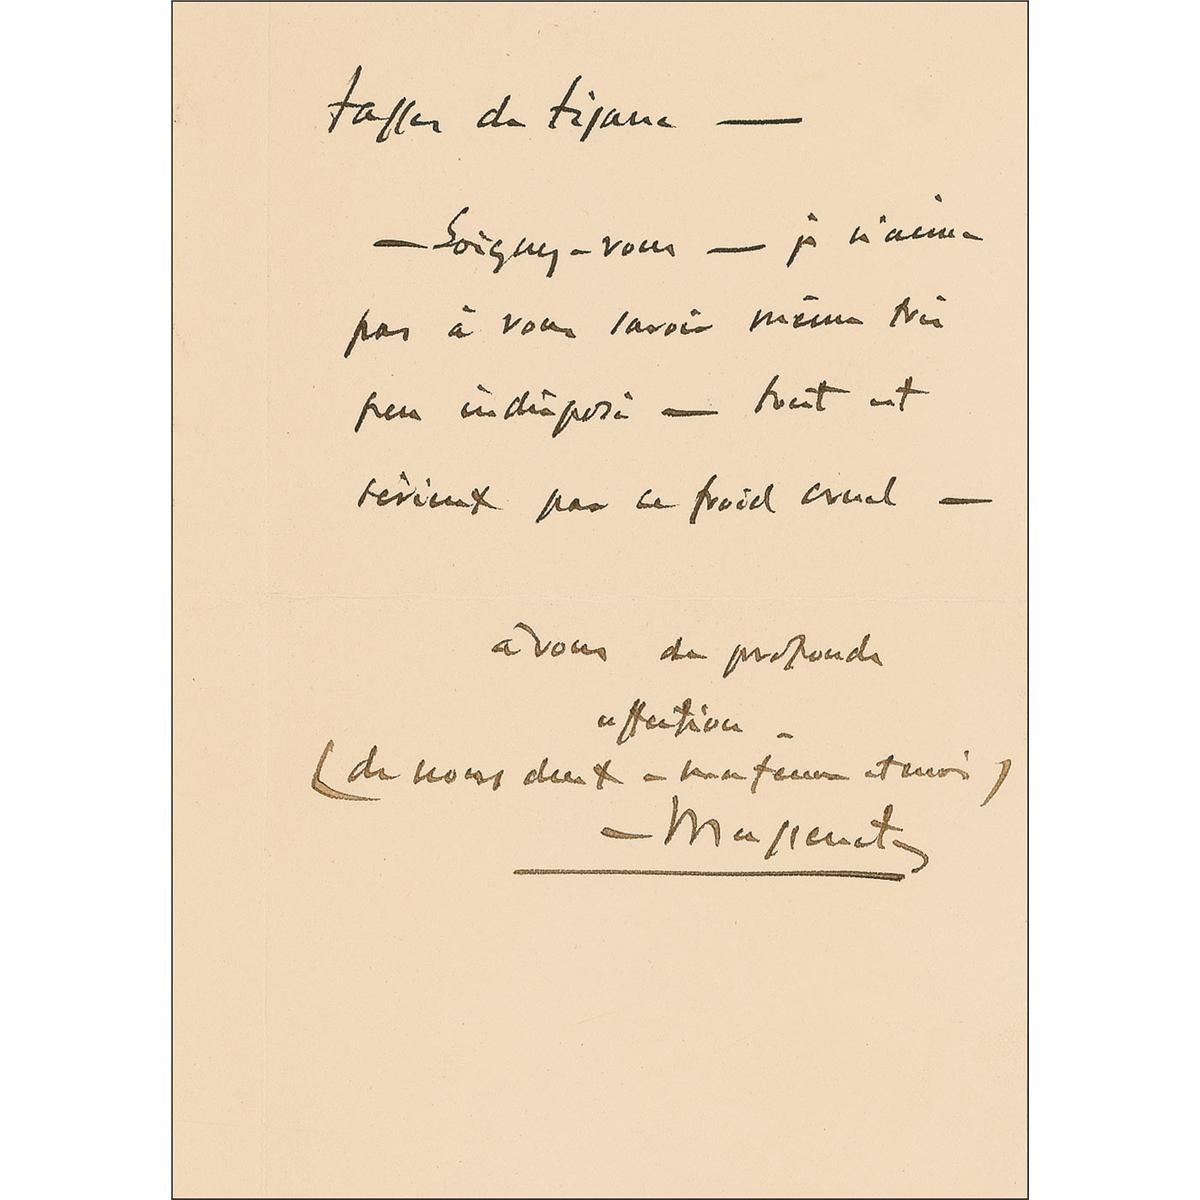 tasses de tisane —
— Soignez-vous — je n'aime
pas à vous savoir même très
peu indisposé — tout est
sérieux par ce froid cruel —
à vous de profonde
affection -
(de nous deux - ma femme et moi)
— Massenet